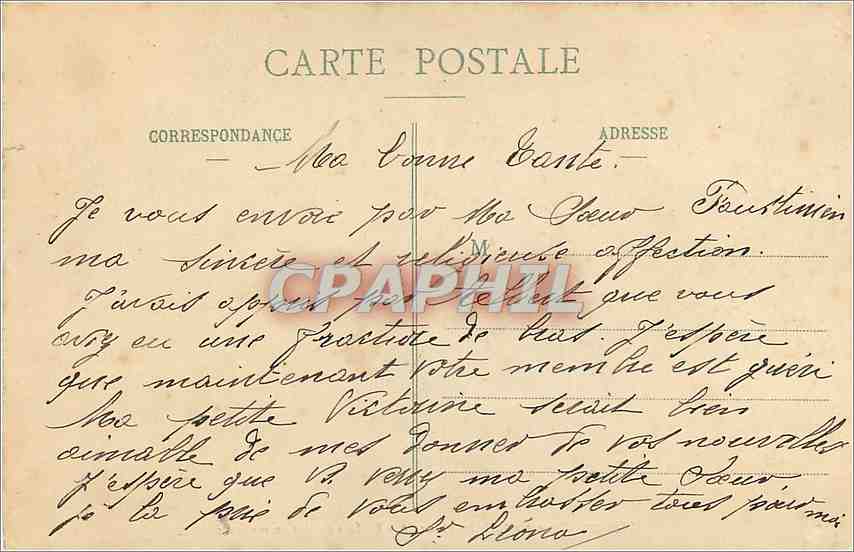 CARTE POSTALE
CORRESPONDANCE
ADRESSE
Ma bonne Tante.
Je vous envoie par Ma Sœur Faustinien
M
ma sincère et religieuse affection.
CPAPHIL
J'avais appris par que vous
avez eu une fracture de bras. J'espère
que maintenant votre membre est guéri
Ma petite Victorine serait bien
aimable de mes donner de vos nouvelles
J'espère que ma petite Sœur
je la prie de vous embrasser tous pour moi
Sr Léona